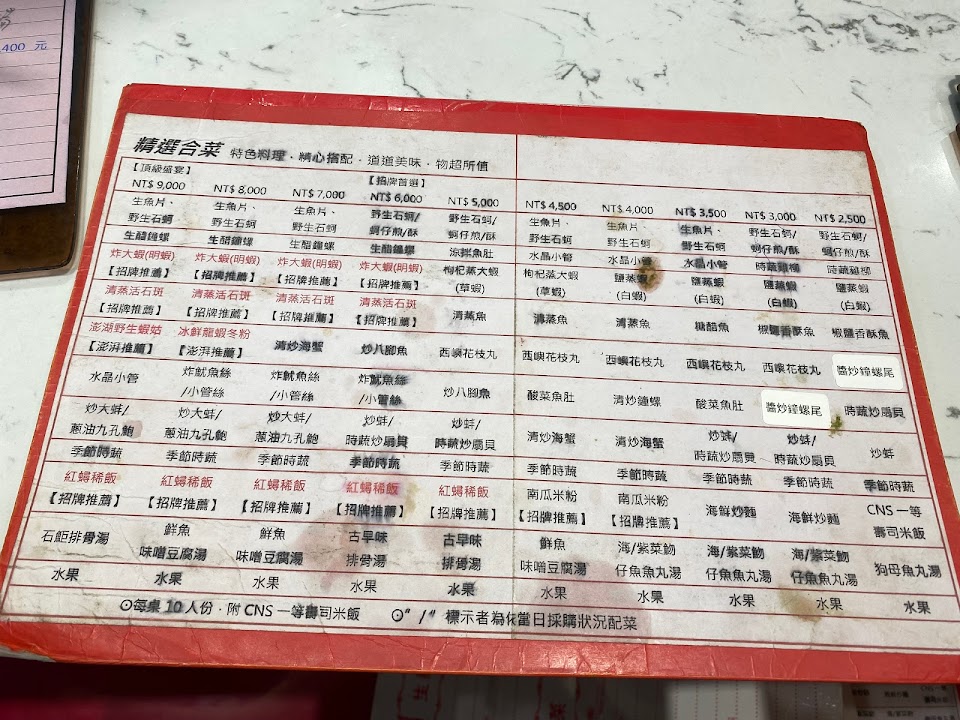 400 元
精選合菜 特色料理．精心搭配．道道美味．物超所值
【頂級盛宴】 【招牌首選】
NT$ 9,000 NT$ 8,000 NT$ 7,000 NT$ 6,000 NT$ 5,000 NT$ 4,500 NT$ 4,000 NT$ 3,500 NT$ 3,000 NT$ 2,500
生魚片、 生魚片、 生魚片、 野生石蚵/ 野生石蚵/ 生魚片、 生魚片、 生魚片、 野生石蚵/ 野生石蚵/
野生石蚵 野生石蚵 野生石蚵 蚵仔煎/酥 蚵仔煎/酥 野生石蚵 野生石蚵 野生石蚵 蚵仔煎/酥 蚵仔煎/酥
生醋鐘螺 生醋鐘螺 生醋鐘螺 生醋鐘螺 涼拌魚肚 水晶小管 水晶小管 水晶小管 時蔬雞柳 時蔬雞柳
炸大蝦(明蝦) 炸大蝦(明蝦) 炸大蝦(明蝦) 炸大蝦(明蝦) 枸杞蒸大蝦 枸杞蒸大蝦 鹽蒸蝦 鹽蒸蝦 鹽蒸蝦 鹽蒸蝦
【招牌推薦】 【招牌推薦】 【招牌推薦】 【招牌推薦】 (草蝦) (草蝦) (白蝦) (白蝦) (白蝦) (白蝦)
清蒸活石斑 清蒸活石斑 清蒸活石斑 清蒸活石斑 清蒸魚 清蒸魚 清蒸魚 糖醋魚 椒鹽香酥魚 椒鹽香酥魚
【招牌推薦】 【招牌推薦】 【招牌推薦】 【招牌推薦】
澎湖野生蝦姑 冰鮮龍蝦冬粉 清炒海蟹 炒八腳魚 西嶼花枝丸 西嶼花枝丸 西嶼花枝丸 西嶼花枝丸 西嶼花枝丸 醬炒鐘螺尾
【澎湃推薦】 【澎湃推薦】
水晶小管 炸魷魚絲 炸魷魚絲 炸魷魚絲 炒八腳魚 酸菜魚肚 清炒鐘螺 酸菜魚肚 醬炒鐘螺尾 時蔬炒扇貝
/小管絲 /小管絲 /小管絲
炒大蚌/ 炒大蚌/ 炒大蚌/ 炒蚌/ 炒蚌/ 清炒海蟹 清炒海蟹 炒蚌/ 炒蚌/ 炒蚌
蔥油九孔鮑 蔥油九孔鮑 蔥油九孔鮑 時蔬炒扇貝 時蔬炒扇貝 時蔬炒扇貝 時蔬炒扇貝
季節時蔬 季節時蔬 季節時蔬 季節時蔬 季節時蔬 季節時蔬 季節時蔬 季節時蔬 季節時蔬 季節時蔬
紅蟳稀飯 紅蟳稀飯 紅蟳稀飯 紅蟳稀飯 紅蟳稀飯 南瓜米粉 南瓜米粉 海鮮炒麵 海鮮炒麵 CNS 一等
【招牌推薦】 【招牌推薦】 【招牌推薦】 【招牌推薦】 【招牌推薦】 【招牌推薦】 【招牌推薦】 壽司米飯
石鉅排骨湯 鮮魚 鮮魚 古早味 古早味 鮮魚 海/紫菜魩 海/紫菜魩 海/紫菜魩 狗母魚丸湯
味噌豆腐湯 味噌豆腐湯 排骨湯 排骨湯 味噌豆腐湯 仔魚魚丸湯 仔魚魚丸湯 仔魚魚丸湯
水果 水果 水果 水果 水果 水果 水果 水果 水果 水果
⊙每桌 10 人份．附 CNS 一等壽司米飯 ⊙“ / ” 標示者為依當日採購狀況配菜